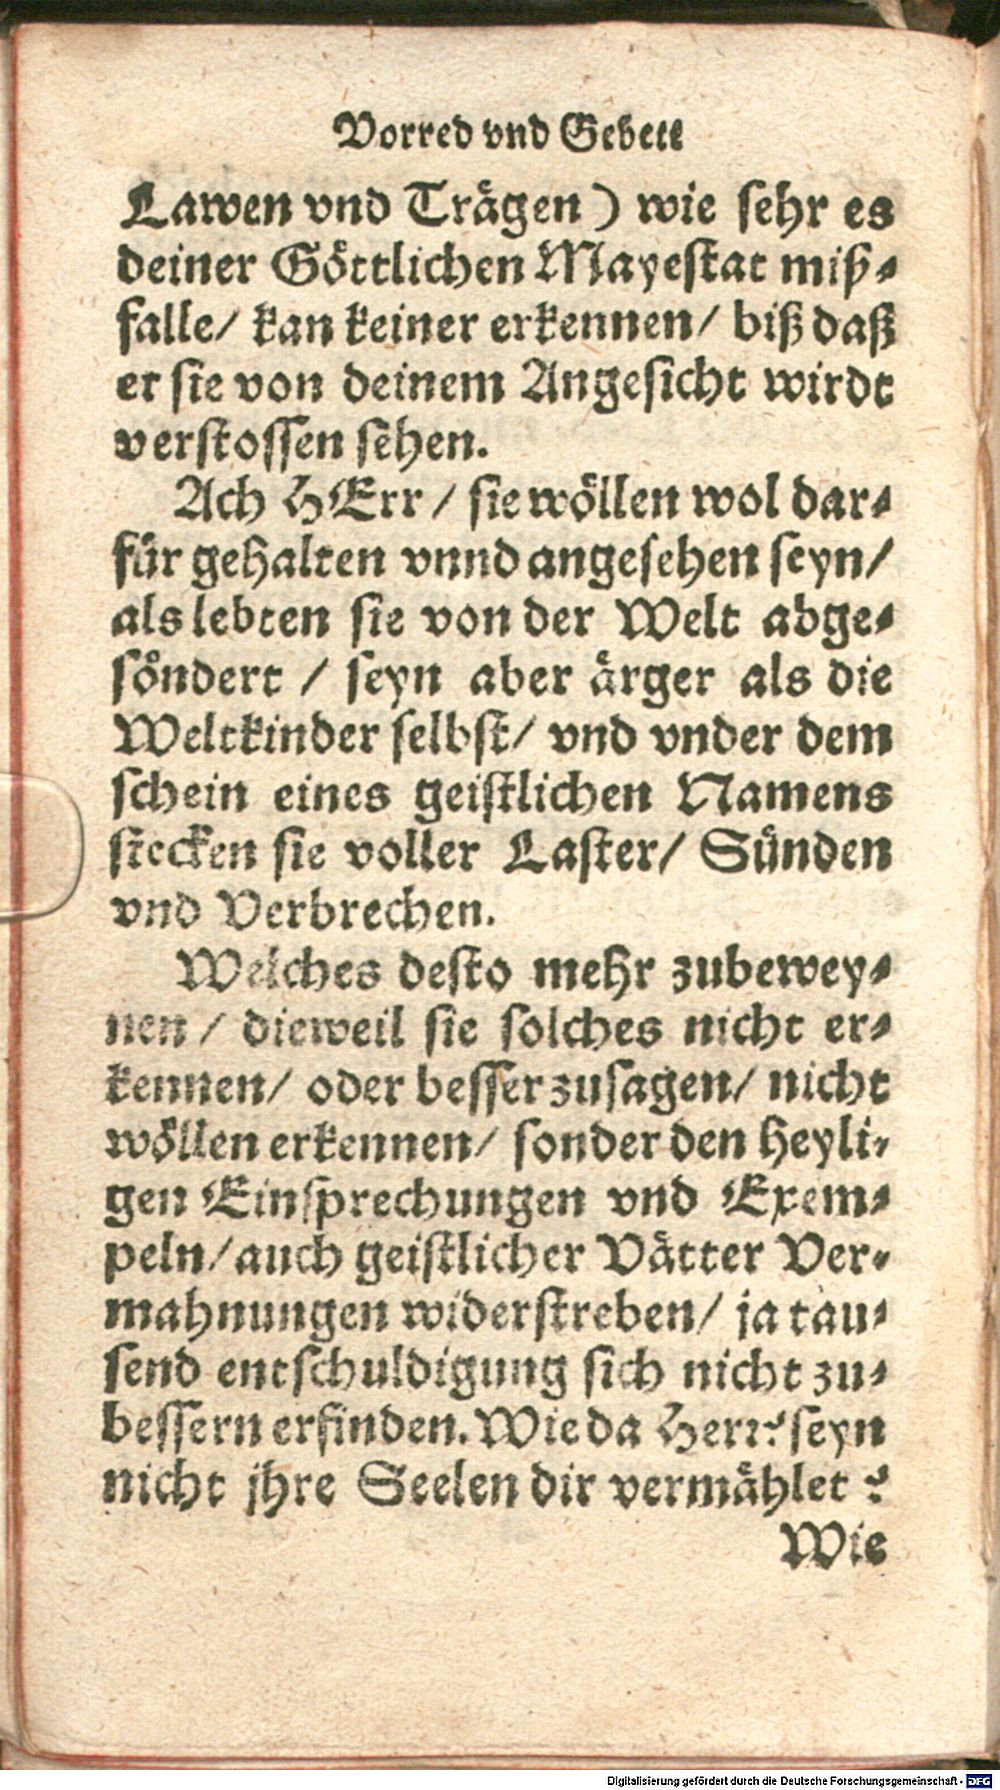 Vorred vnd Gebett
Lawen vnd Trägen) wie sehr es
deiner Göttlichen Mayestat miß-
falle/ kan keiner erkennen/ biß daß
er sie von deinem Angesicht wirdt
verstossen sehen.
Ach HErr/ sie wöllen wol dar-
für gehalten vnnd angesehen seyn/
als lebten sie von der Welt abge-
söndert / seyn aber ärger als die
Weltkinder selbst/ vnd vnder dem
schein eines geistlichen Namens
stecken sie voller Laster/ Sünden
vnd Verbrechen.
Welches desto mehr zubewey-
nen / dieweil sie solches nicht er-
kennen/ oder besser zusagen/ nicht
wöllen erkennen/ sonder den heyli-
gen Einsprechungen vnd Exem-
peln/ auch geistlicher Vätter Ver-
mahnungen widerstreben/ ja tau-
send entschuldigung sich nicht zu-
bessern erfinden. Wie da Herr? seyn
nicht jhre Seelen dir vermählet?
Wie
Digitalisierung gefördert durch die Deutsche Forschungsgemeinschaft - DFG